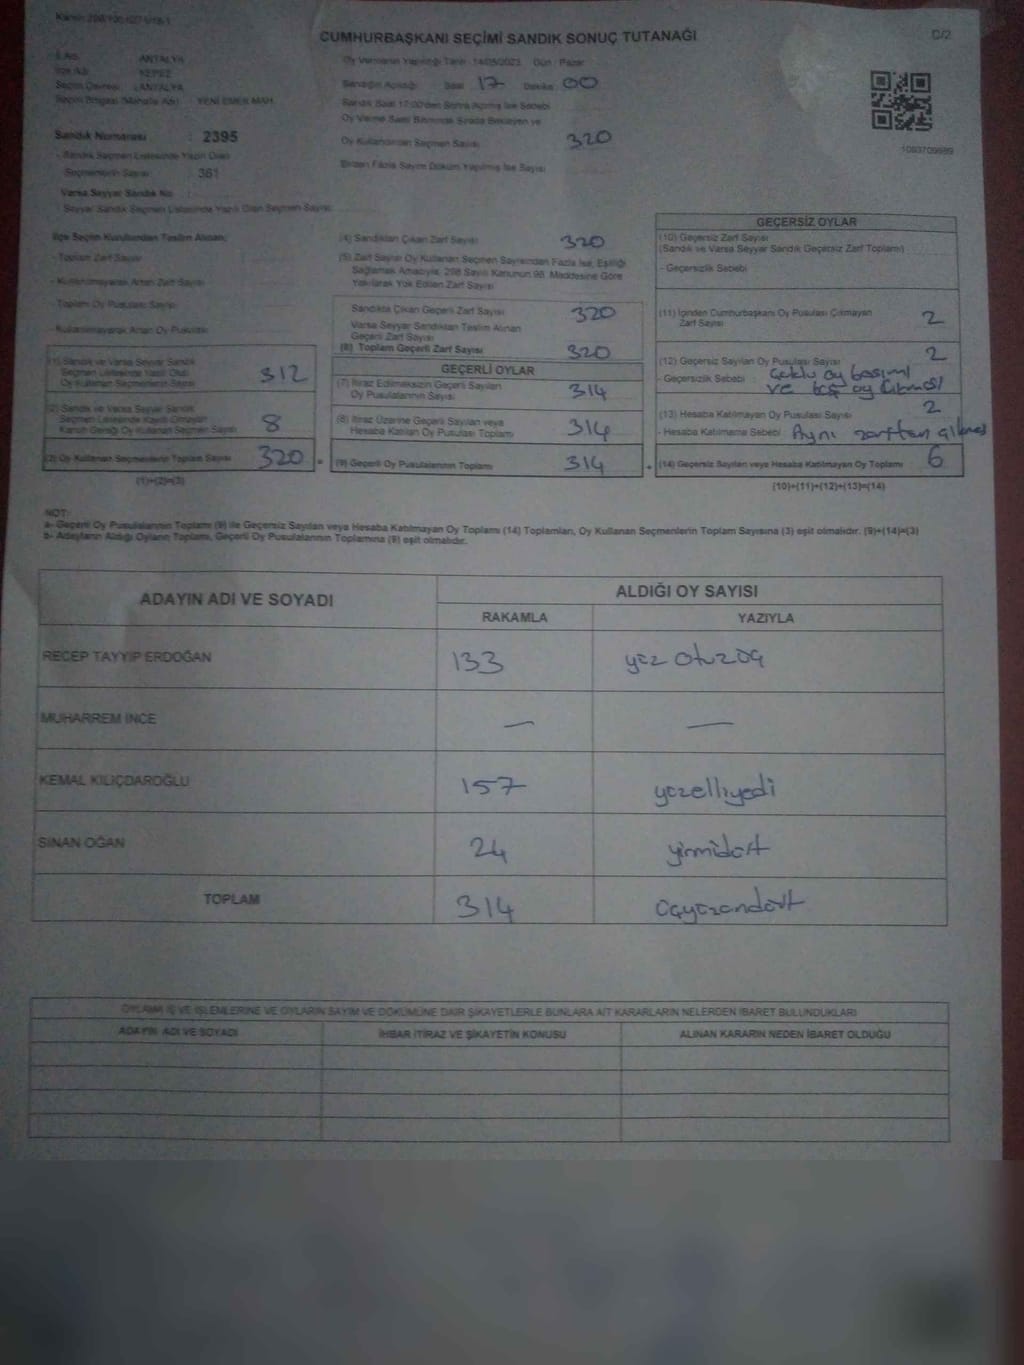 CUMHURBAŞKANI SEÇİMİ SANDIK SONUÇ TUTANAĞI
D/2
İl Adı : ANTALYA
İlçe Adı : KEPEZ
Seçim Çevresi : ANTALYA
Seçim Bölgesi (Mahalle Adı) : YENİ EMEK MAH.
Sandık Numarası : 2395
- Sandık Seçmen Listesinde Yazılı Olan
Seçmenlerin Sayısı : 361
Varsa Seyyar Sandık No :
- Seyyar Sandık Seçmen Listesinde Yazılı Olan Seçmen Sayısı
Oy Vermenin Yapıldığı Tarih : 14/05/2023 Gün : Pazar
Sandığın Açıldığı : Saat 17 Dakika 00
Sandık Saat 17:00'den Sonra Açılmış İse Sebebi
Oy Verme Saati Bitiminde Sırada Bekleyen ve
Oy Kullandırılan Seçmen Sayısı 320
Birden Fazla Sayım Döküm Yapılmış İse Sayısı
1093709989
İlçe Seçim Kurulundan Teslim Alınan;
- Toplam Zarf Sayısı
- Kullanılmayarak Artan Zarf Sayısı
- Toplam Oy Pusulası Sayısı
- Kullanılmayarak Artan Oy Pusulası
(1) Sandık ve Varsa Seyyar Sandık
Seçmen Listesinde Yazılı Olup
Oy Kullanan Seçmenlerin Sayısı 312
(2) Sandık ve Varsa Seyyar Sandık
Seçmen Listesinde Kayıtlı Olmayan
Kanun Gereği Oy Kullanan Seçmen Sayısı 8
(3) Oy Kullanan Seçmenlerin Toplam Sayısı 320
(1)+(2)=(3)
(4) Sandıktan Çıkan Zarf Sayısı 320
(5) Zarf Sayısı Oy Kullanan Seçmen Sayısından Fazla İse, Eşitliği
Sağlamak Amacıyla, 298 Sayılı Kanunun 98. Maddesine Göre
Yakılarak Yok Edilen Zarf Sayısı
Sandıkta Çıkan Geçerli Zarf Sayısı 320
Varsa Seyyar Sandıktan Teslim Alınan
Geçerli Zarf Sayısı
(6) Toplam Geçerli Zarf Sayısı 320
GEÇERLİ OYLAR
(7) İtiraz Edilmeksizin Geçerli Sayılan
Oy Pusulalarının Sayısı 314
(8) İtiraz Üzerine Geçerli Sayılan veya
Hesaba Katılan Oy Pusulası Toplamı 314
(9) Geçerli Oy Pusulalarının Toplamı 314
GEÇERSİZ OYLAR
(10) Geçersiz Zarf Sayısı
(Sandık ve Varsa Seyyar Sandık Geçersiz Zarf Toplamı)
- Geçersizlik Sebebi
(11) İçinden Cumhurbaşkanı Oy Pusulası Çıkmayan
Zarf Sayısı 2
(12) Geçersiz Sayılan Oy Pusulası Sayısı 2
- Geçersizlik Sebebi : Çoklu oy basımı
ve boş oy çıkması
(13) Hesaba Katılmayan Oy Pusulası Sayısı 2
- Hesaba Katılmama Sebebi : Aynı zarftan çıkması
(14) Geçersiz Sayılan veya Hesaba Katılmayan Oy Toplamı 6
(10)+(11)+(12)+(13)=(14)
NOT:
a- Geçerli Oy Pusulalarının Toplamı (9) ile Geçersiz Sayılan veya Hesaba Katılmayan Oy Toplamı (14) Toplamları, Oy Kullanan Seçmenlerin Toplam Sayısına (3) eşit olmalıdır. (9)+(14)=(3)
b- Adayların Aldığı Oyların Toplamı, Geçerli Oy Pusulalarının Toplamına (9) eşit olmalıdır.
ADAYIN ADI VE SOYADI ALDIĞI OY SAYISI
RAKAMLA YAZIYLA
RECEP TAYYİP ERDOĞAN 133 yüz otuzüç
MUHARREM İNCE — —
KEMAL KILIÇDAROĞLU 157 yüzelliyedi
SİNAN OĞAN 24 yirmidört
TOPLAM 314 üçyüzondört
OYLAMA İŞ VE İŞLEMLERİNE VE OYLARIN SAYIM VE DÖKÜMÜNE DAİR ŞİKAYETLERLE BUNLARA AİT KARARLARIN NELERDEN İBARET BULUNDUKLARI
ADAYIN ADI VE SOYADI İHBAR İTİRAZ VE ŞİKAYETİN KONUSU ALINAN KARARIN NEDEN İBARET OLDUĞU